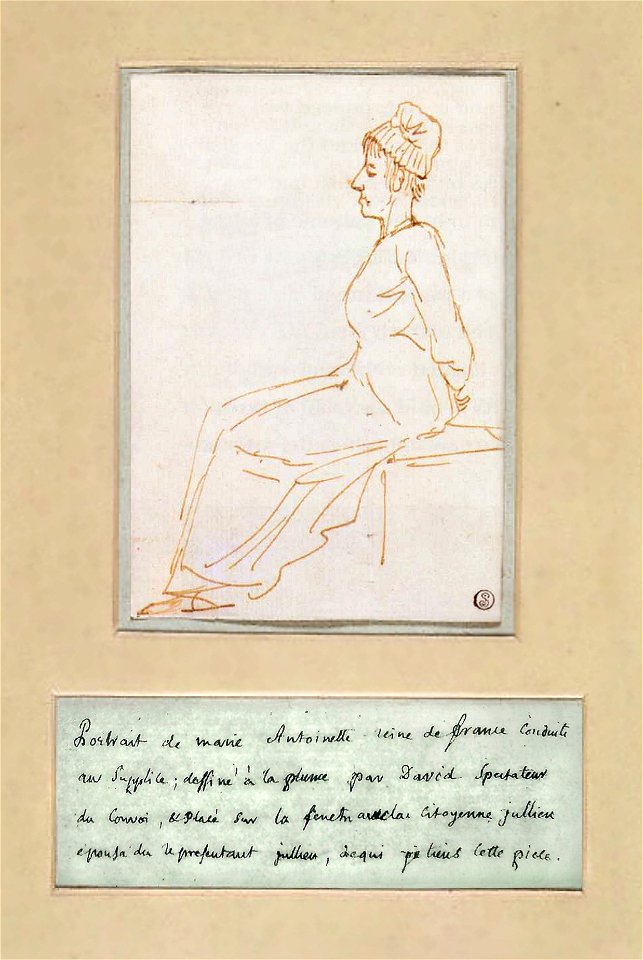 S
Portrait de marie Antoinette reine de france conduite
au Supplice; dessiné à la plume par David Spectateur
du Convoi, & placé sur la fenetre avec la citoyenne jullien
epouse du representant jullien, de qui je tiens cette piece.